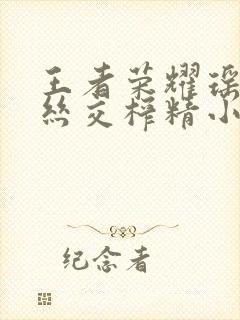 王者荣耀瑶
丝交榨精小
纪念者